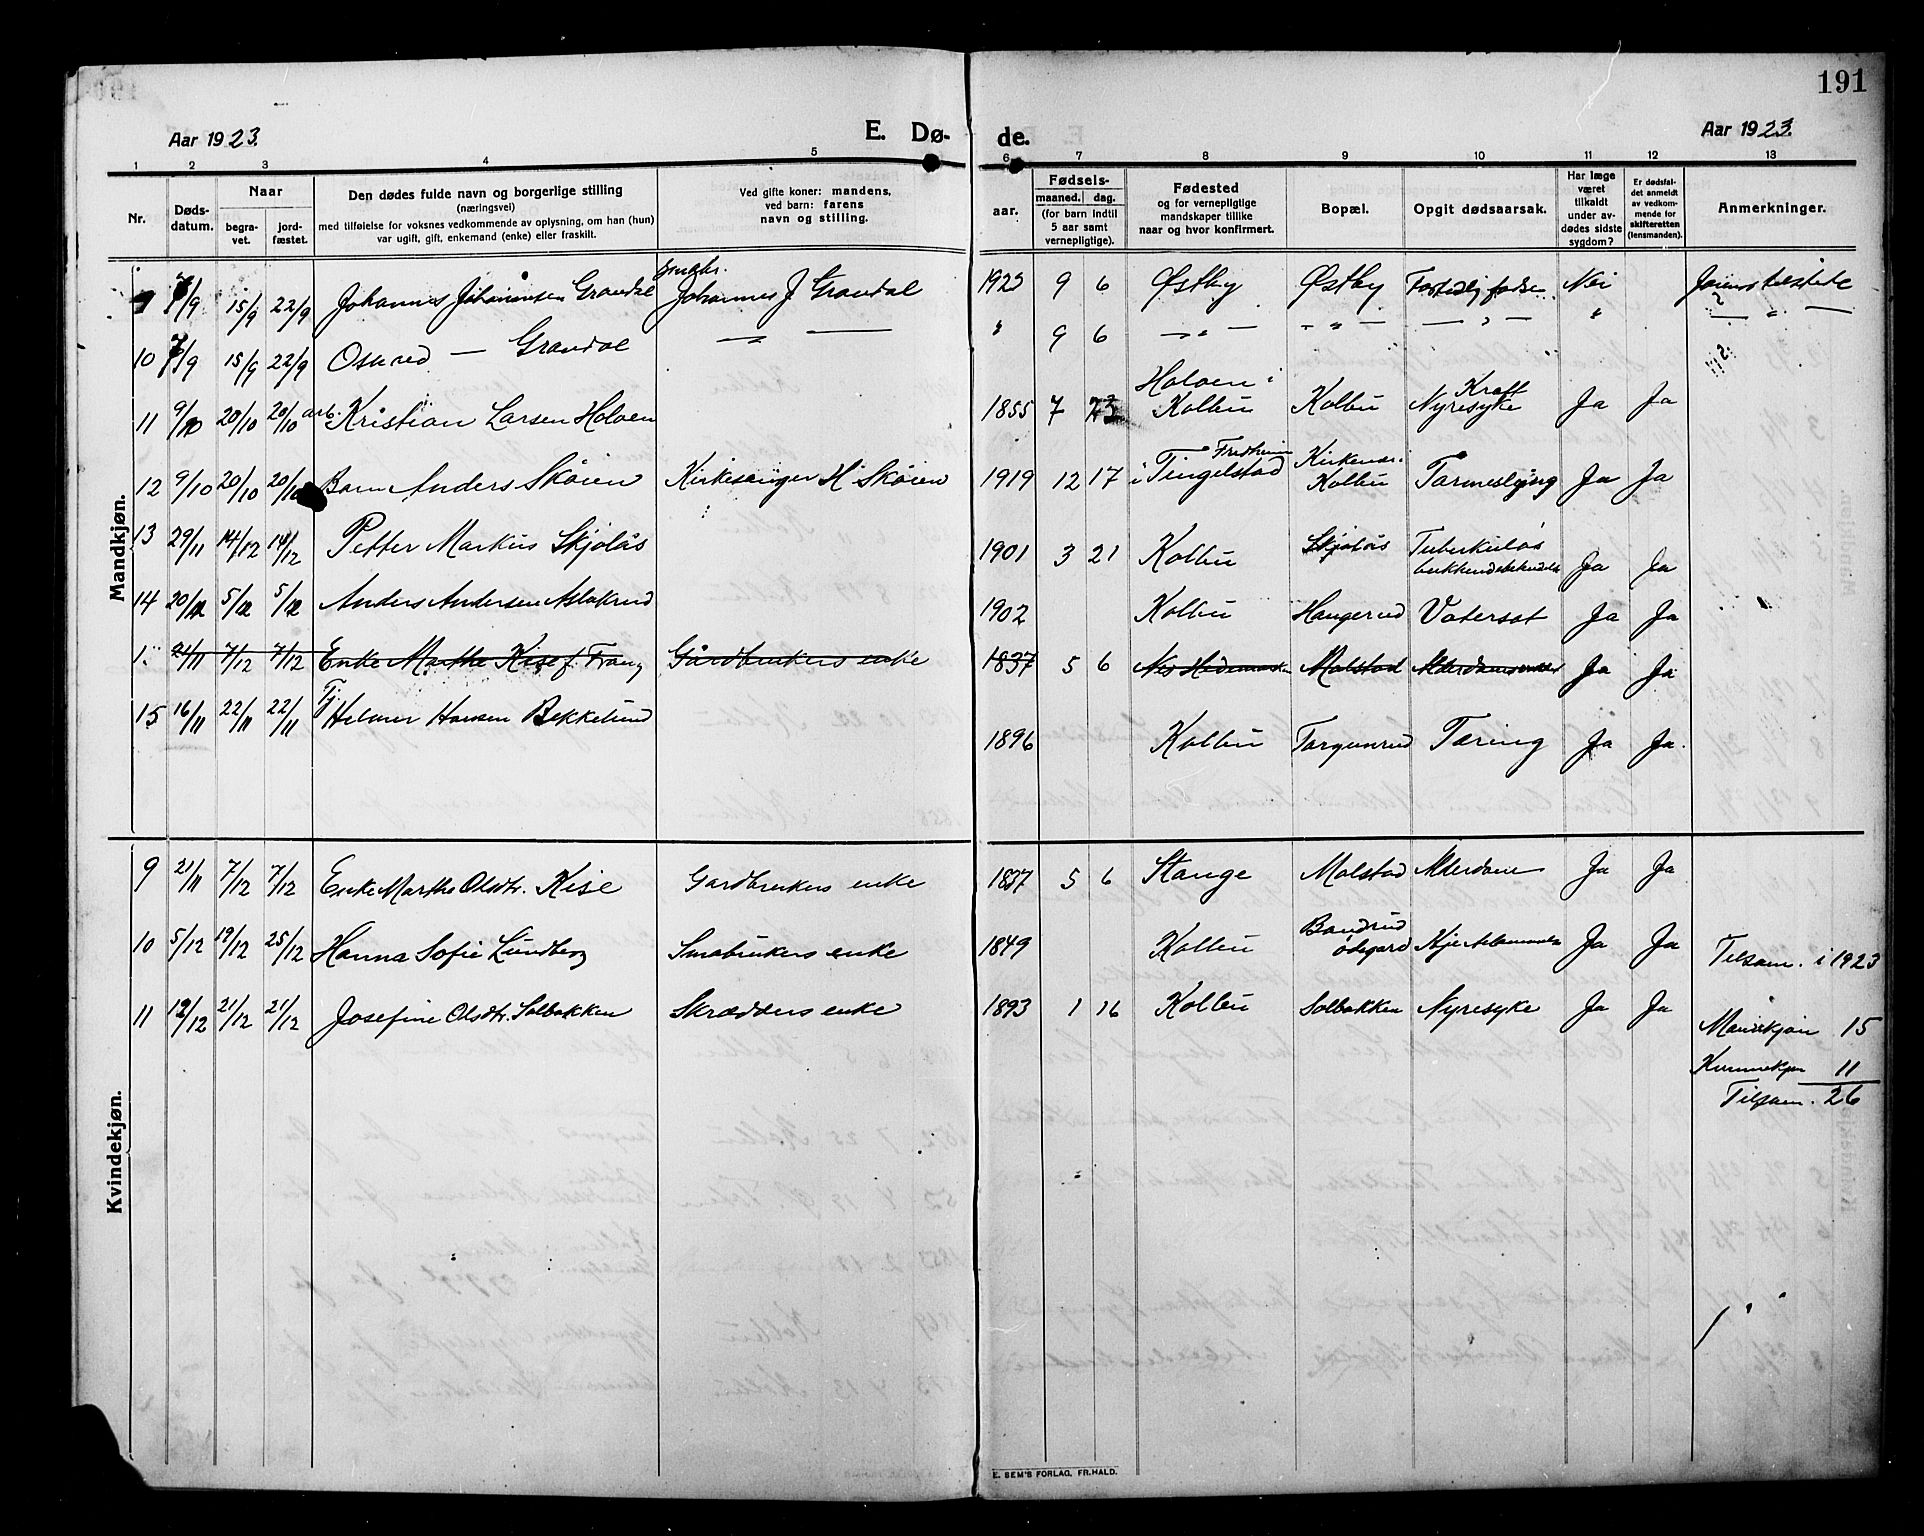 191
Aar 1923.
E. Dø-
de.
Aar 1923.
1 2 3 4 5 6 7 8 9 10 11 12 13
Nr.
Døds-
datum.
Naar
begra-
vet.
jord-
fæstet.
Den dødes fulde navn og borgerlige stilling
(næringsvei)
med tilføielse for voksnes vedkommende av oplysning, om han (hun)
var ugift, gift, enkemand (enke) eller fraskilt.
Ved gifte koner: mandens,
ved barn: farens
navn og stilling.
aar.
Fødsels-
maaned. dag.
(for barn indtil
5 aar samt
vernepligtige).
Fødested
og for vernepligtige
mandskaper tillike
naar og hvor konfirmert.
Bopæl.
Opgit dødsaarsak.
Har læge
været
tilkaldt
under av-
dødes sidste
sygdom?
Er dødsfal-
det anmeldt
av vedkom-
mende for
skifteretten
(lensmanden).
Anmerkninger.
Mandkjøn.
9 7/9 15/9 22/9 Johannes Johannesen Grandal Smabr. Johannes J Grandal 1923 9 6 Østby Østby Fortidlig fødsel Nei
10 7/9 15/9 22/9 Osvred — Grandal — " — " 9 6 — " — — " — — " — " — " —
11 9/10 20/10 20/10 arb. Kristian Larsen Holoen 1855 7 23 Holoen i Kolbu Kolbu Kræft Nyresyke Ja Ja
12 9/10 20/10 20/10 Barn Anders Skóien Kirkesanger H Skóien 1919 12 17 Fredheim i Tingelstad Kolbu Tarmeslyng Ja Ja
13 29/11 14/12 14/12 Petter Markus Skjolås 1901 3 21 Kolbu Skjolås Tuberkuløs Ja Ja
14 20/11 5/12 5/12 Anders Andersen Aslakrud 1902 Kolbu Haugerud Vatersot Ja Ja
1. 21/11 7/12 7/12 Enke Marthe Kise f. Gårdbrukers enke 1837 5 6 Nes Hedemarken Molstad Ja Ja
15 16/11 22/11 22/11 Tj Helmer Hansen Bekkelund 1896 Kolbu Torgunrud Tæring Ja Ja.
Kvindekjøn.
9 21/11 7/12 7/12 Enke Marthe Olsdtr. Kise Gardbrukers enke 1837 5 6 Stange Molstad Alderdom Ja Ja
10 5/12 19/12 25/12 Hanna Sofie Lundberg Smabrukers enke 1849 Kolbu Bandrud ødegard Ja Ja
11 12/12 21/12 21/12 Josefine Olsdtr. Solbakken Skrædders enke 1893 1 16 Kolbu Solbakken Nyresyke Ja Ja
Tilsam. i 1923
Mandkjøn 15
Kvinnekjøn 11
Tilsam. 26
E. SEM'S FORLAG, FR.HALD.